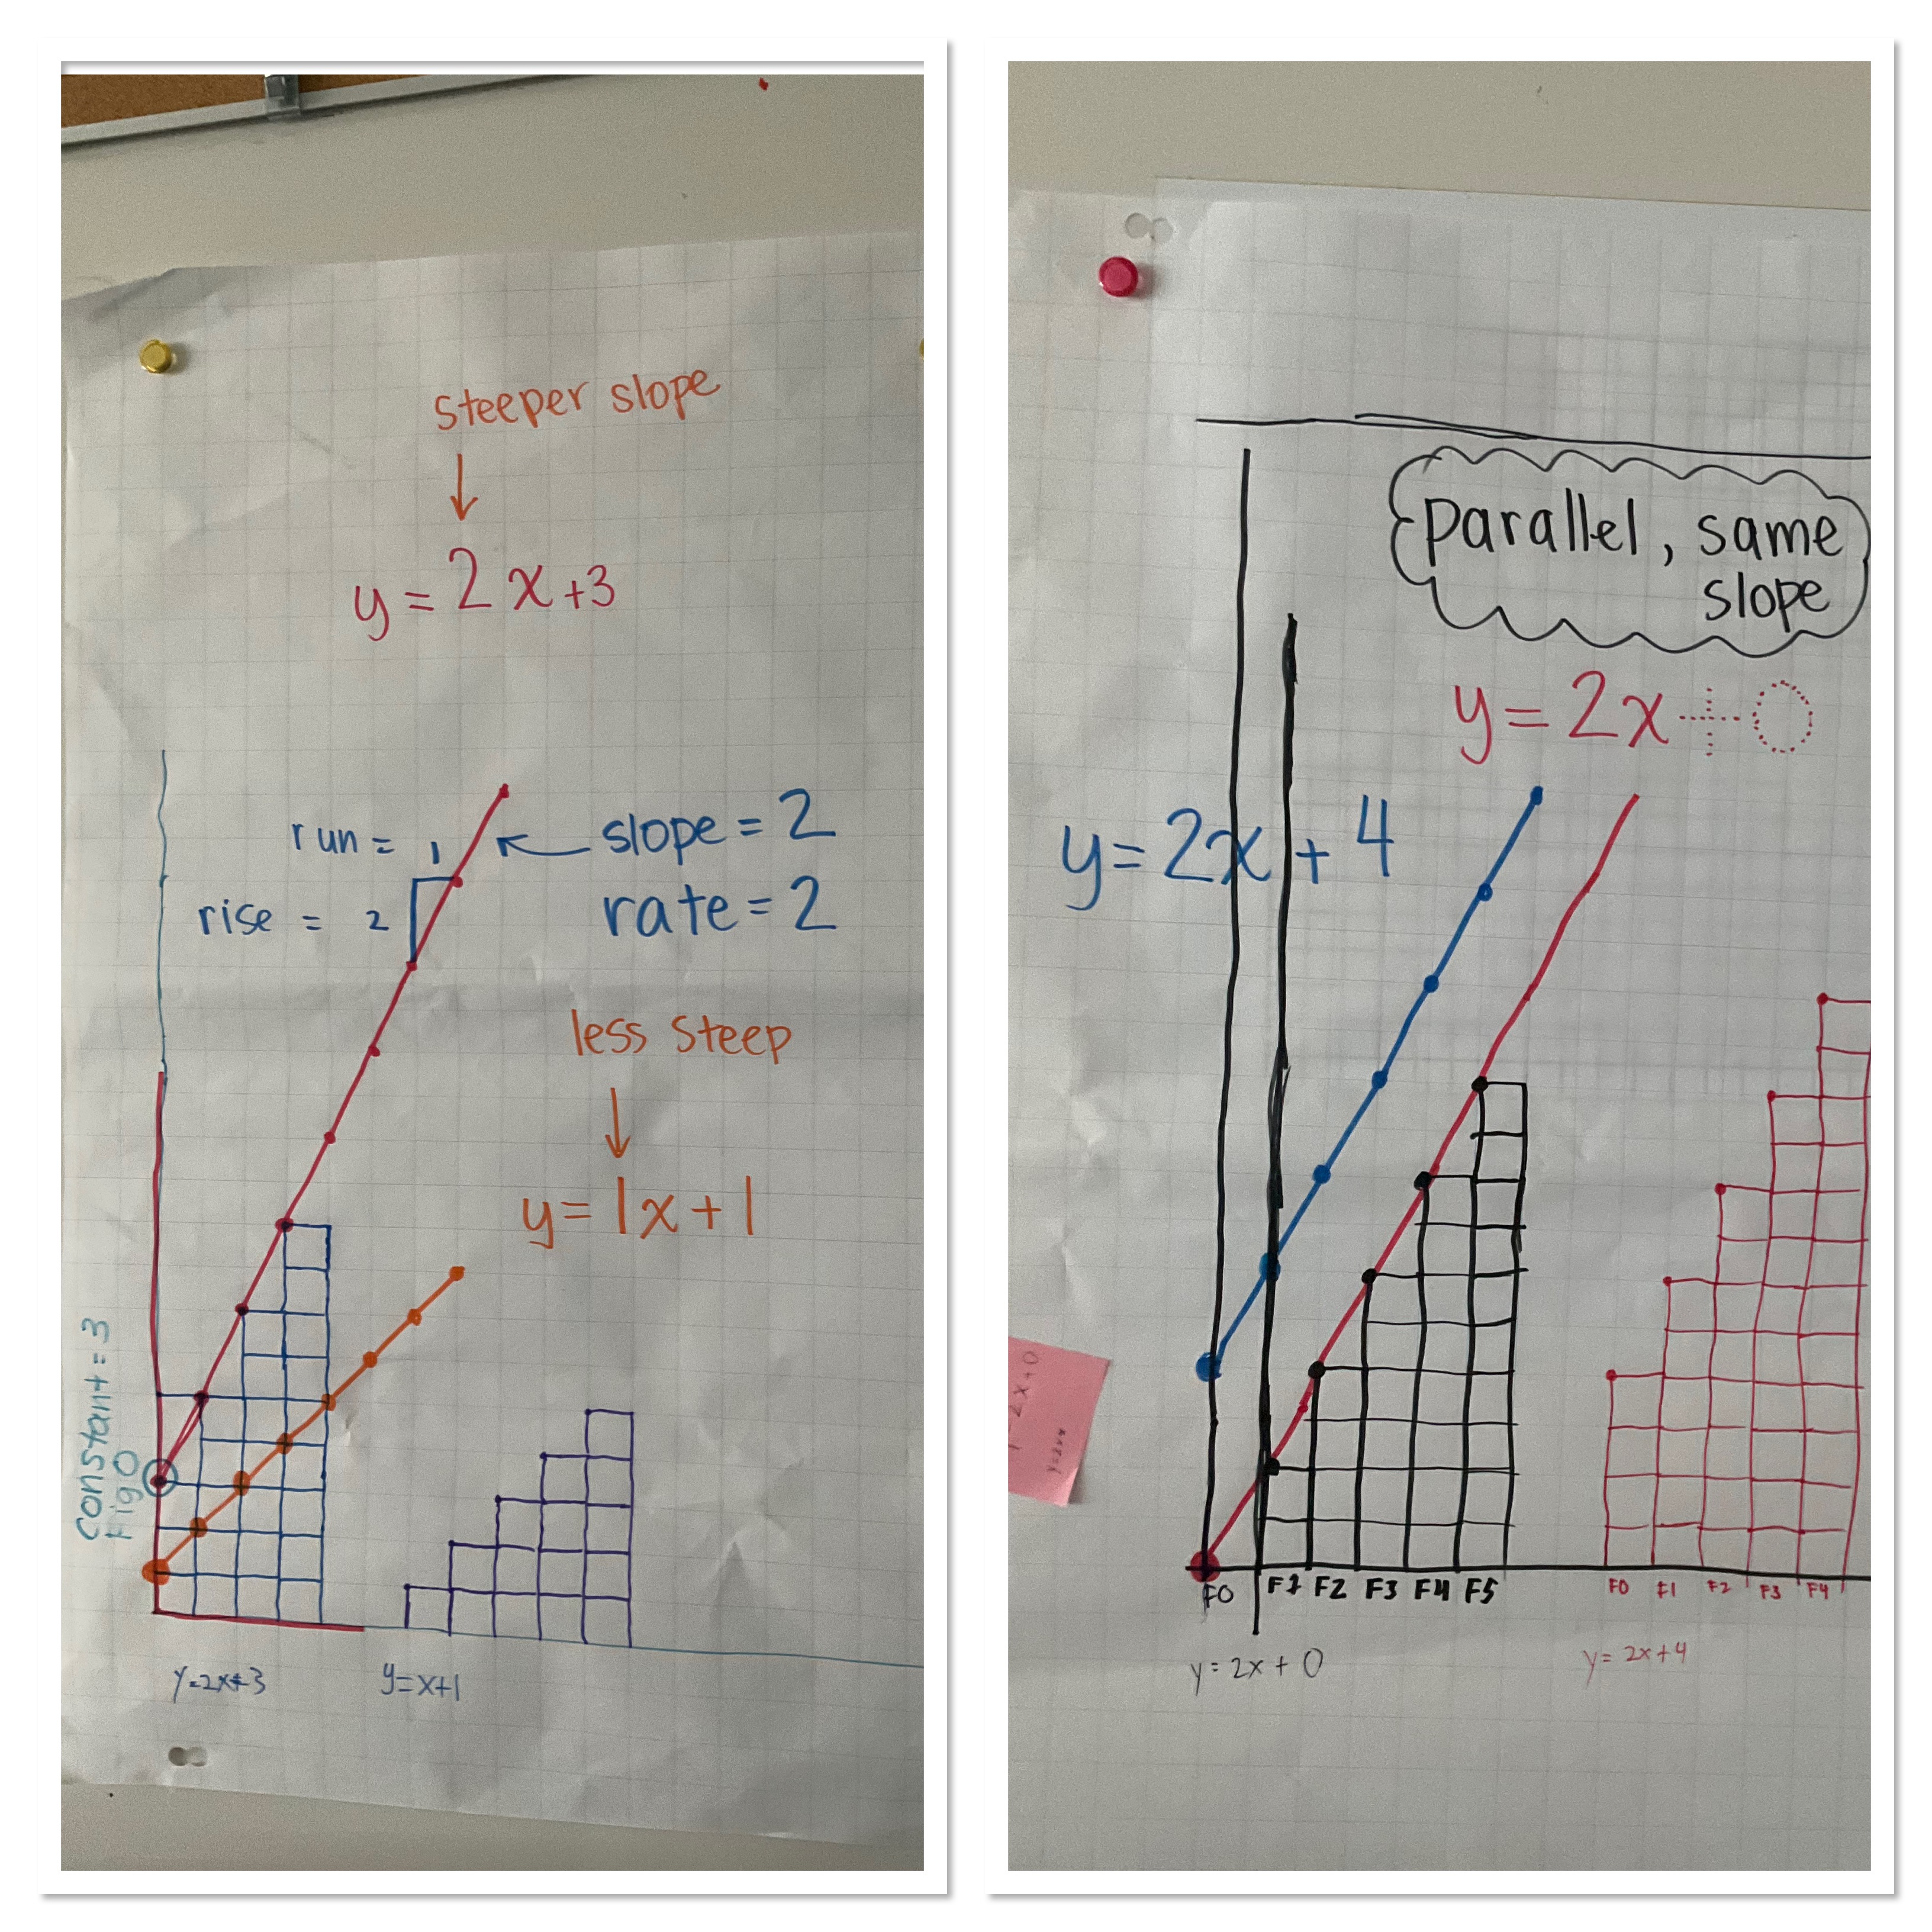 steeper slope
y = 2x+3
run = 1
slope = 2
rise = 2
rate = 2
less steep
y = 1x + 1
constant = 3
Fig 0
y=2x+3
y=x+1
parallel, same
slope
y = 2x + 0
y = 2x + 4
2x+0
F0 F1 F2 F3 F4 F5
F0 F1 F2 F3 F4
y = 2x + 0
y = 2x+4